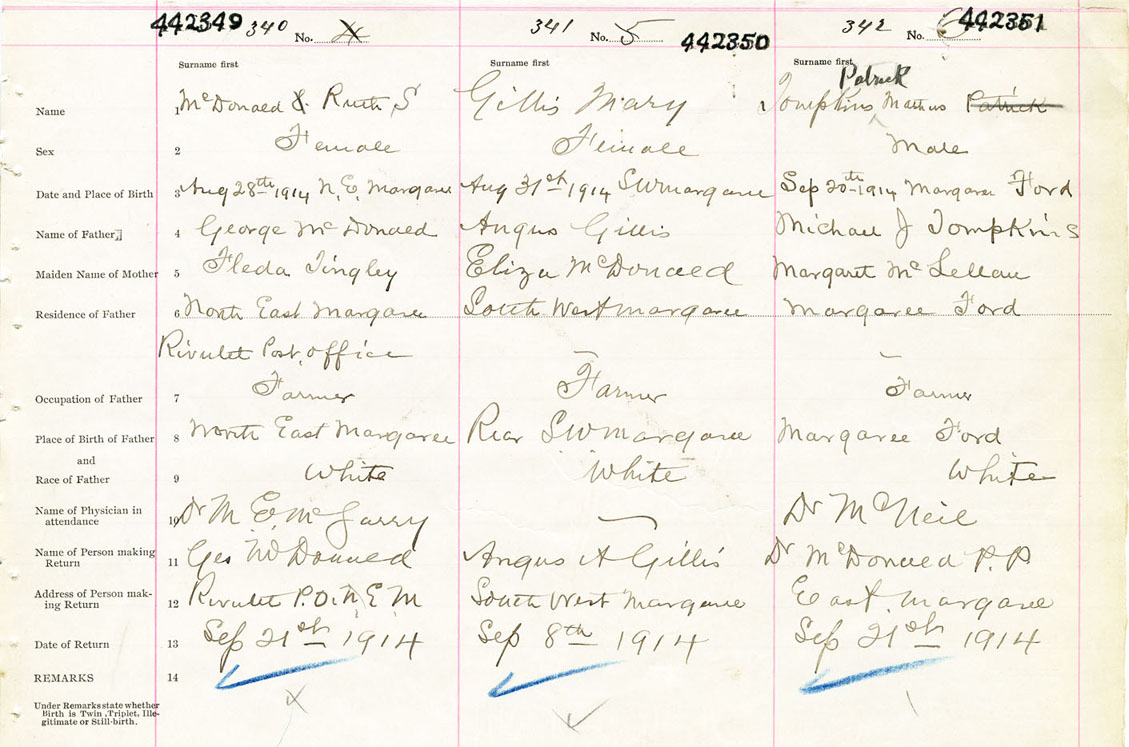 442349 340 No. 4 341 No. 5 442350 342 No. 6 442351
Surname first Surname first Surname first
Patrick
Name 1 McDonald J. Ruth S Gillis Mary Tompkins Mathus Patrick
Sex 2 Female Female Male
Date and Place of Birth 3 Aug 28th 1914 N. E. Margaree Aug 31st 1914 SW Margaree Sep 20th 1914 Margaree Ford
Name of Father 4 George McDonald Angus Gillis Michael J Tompkins
Maiden Name of Mother 5 Fleda Tingley Eliza McDonald Margaret McLellan
Residence of Father 6 North East Margaree South West Margaree Margaree Ford
Rivulet Post office
Occupation of Father 7 Farmer Farmer Farmer
Place of Birth of Father 8 North East Margaree Rear SW Margaree Margaree Ford
and
Race of Father 9 White White White
Name of Physician in
attendance 10 Dr M. E. McGarry Dr McNeil
Name of Person making
Return 11 Geo McDonald Angus A Gillis Dr McDonald P. P.
Address of Person mak-
ing Return 12 Rivulet P.O. N. E M South West Margaree East Margaree
Date of Return 13 Sep 21st 1914 Sep 8th 1914 Sep 21st 1914
REMARKS 14
Under Remarks state whether
Birth is Twin, Triplet, Ille-
gitimate or Still-birth.